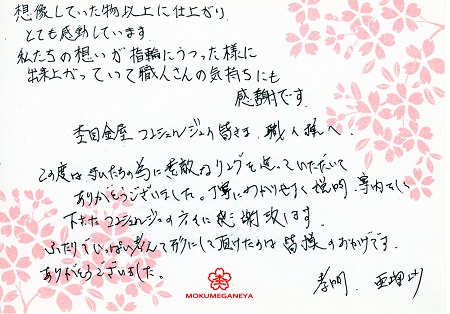 想像していた物以上に仕上がり
とても感動しています。
私たちの想いが指輪にうつった様に
出来上がっていて職人さんの気持ちにも
感謝です.
杢目金屋 コンシェルジュの皆さま 職人様へ.
この度は私たちの為に素敵なリングを造っていただいて
ありがとうございました。丁寧にわかりやすく説明、案内
下さったコンシェルジュの方々に感謝致します.
ふたりでいっぱい考えて形にして頂けたのは皆様のおかげです.
ありがとうございました。
MOKUMEGANEYA